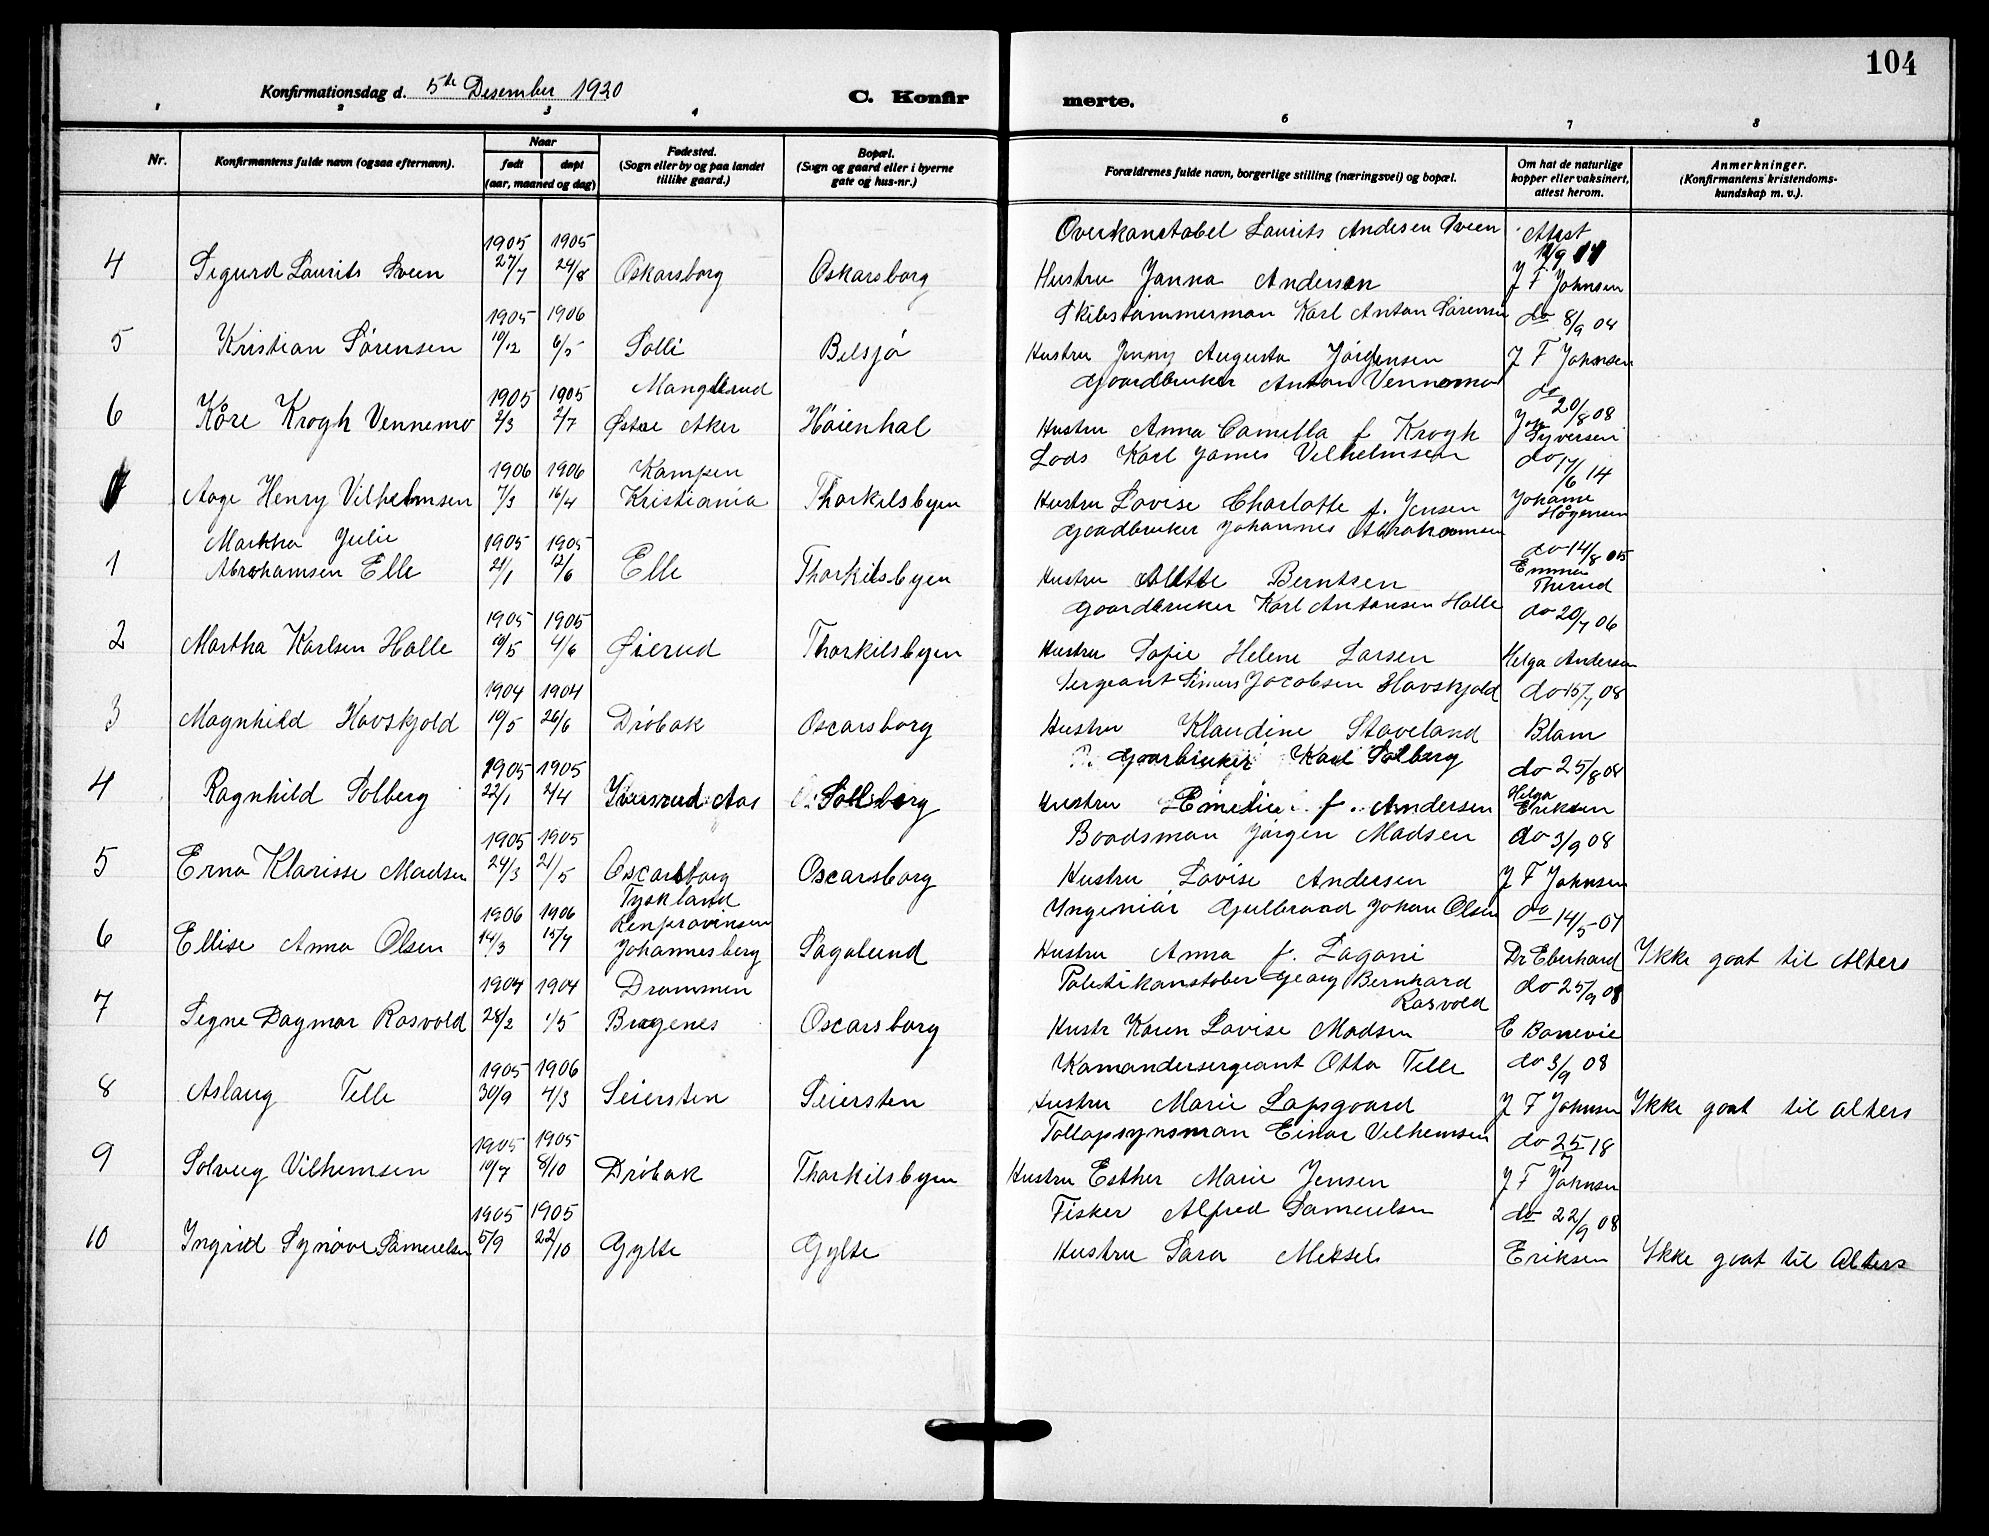 104
Konfirmationsdag d. 5te Desember 1920
C. Konfir merte.
1 2 3 4 5 6 7 8
Nr.
Konfirmantens fulde navn (ogsaa efternavn).
Naar
født døpt
(aar, maaned og dag)
Fødested.
(Sogn eller by og paa landet
tillike gaard.)
Bopæl.
(Sogn og gaard eller i byerne
gate og hus-nr.)
Forældrenes fulde navn, borgerlige stilling (næringsvei) og bopæl.
Om hat de naturlige
kopper eller vaksinert,
attest herom.
Anmerkninger.
(Konfirmantens kristendoms-
kundskap m. v.).
Overkonstabel Laurits Andersen Sveen Attest
1905 1905
4 Sigurd Laurits Sveen 27/7 24/8 Oskarsborg Oskarsborg Hustru Janna Andersen J F Johnsen
1905 1906 Skibstømmerman Karl Anton Sørensen do 8/9 08
5 Kristian Sørensen 10/12 6/5 Solli Belsjø Hustru Jenny Augusta Jørgensen J F Johnsen
1905 1905 Manglerud Gaardbruker Anton Vennemo do 20/8 08
6 Kåre Krogh Vennemo 2/3 2/7 Østre Aker Høienhal Hustru Anna Camilla f Krogh Syversen
1906 1906 Kampen Lods Karl James Vilhelmsen do 17/6 14
7 Aage Henry Vilhelmsen 7/3 16/4 Kristiania Thorkilsbyen Hustru Lovise Charlotte f. Jensen Johanne Hågensen
Martha Julie 1905 1905 Gaardbruker Johannes Abrahamsen do 14/8 05
1 Abrahamsen Elle 21/1 12/6 Elle Thorkilsbyen Hustru Alette Berntsen Emma Therud
1905 1905 Gaardbruker Karl Antonsen Halle do 20/7 06
2 Martha Karlsen Halle 10/5 4/6 Øierud Thorkilsbyen Hustru Sofie Helene Larsen Helga Andersen
1904 1904 Sergeant Simers Jacobsen Havskjold do 15/7 08
3 Magnhild Havskjold 19/5 26/6 Drøbak Oscarsborg Hustru Klaudine Staveland Blam
1905 1905 Gaarbruker Karl Solberg do 25/8 08
4 Ragnhild Solberg 22/1 2/4 Iversrud Aas Solberg Hustru Emelie f. Andersen Helga Eriksen
1905 1905 Baadsman Jørgen Madsen do 3/9 08
5 Erna Klarisse Madsen 24/3 21/5 Oscarsborg Oscarsborg Hustru Lovise Andersen J F Johnsen
1906 1906 Tyskland Renprovinsen Ingeniør Gulbrand Johan Olsen do 14/5 07
6 Ellise Anna Olsen 14/3 15/4 Johannesberg Sagalund Hustru Anna f. Lagoni Dr Eberhard Ikke gaat til Alters
1904 1904 Drammen Politikonstabel Georg Bernhard Rasvold do 25/9 08
7 Signe Dagmar Rasvold 28/2 1/5 Bragenes Oscarsborg Hustr Karen Lovise Madsen E Bonnevie
1905 1906 Komandersergeant Otto Telle do 3/9 08
8 Aslaug Telle 30/9 4/3 Seiersten Seiersten Hustru Marie Lapsgaard J F Johnsen Ikke gaat til alters
1905 1905 Tollopsynsman Einar Vilhemsen do 25/7 18
9 Solveig Vilhemsen 10/7 8/10 Drøbak Thorkilsbyen Hustru Esther Marie Jensen J F Johnsen
1905 1905 Fisker Alfred Samuelsen do 22/9 08
10 Ingrid Synøve Samuelsen 5/9 22/10 Gylte Gylte Hustru Sara Meksel Eriksen Ikke gaat til Alters